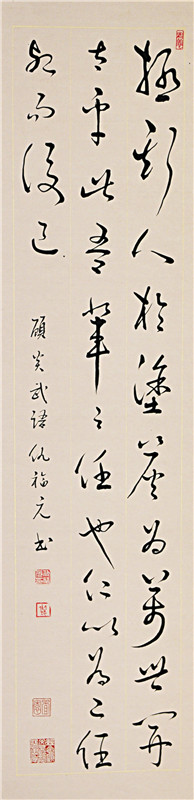 拯斯人於塗炭為萬世開
太平此吾輩之任也仁以為己任
死而後已
顧炎武語仇福元书